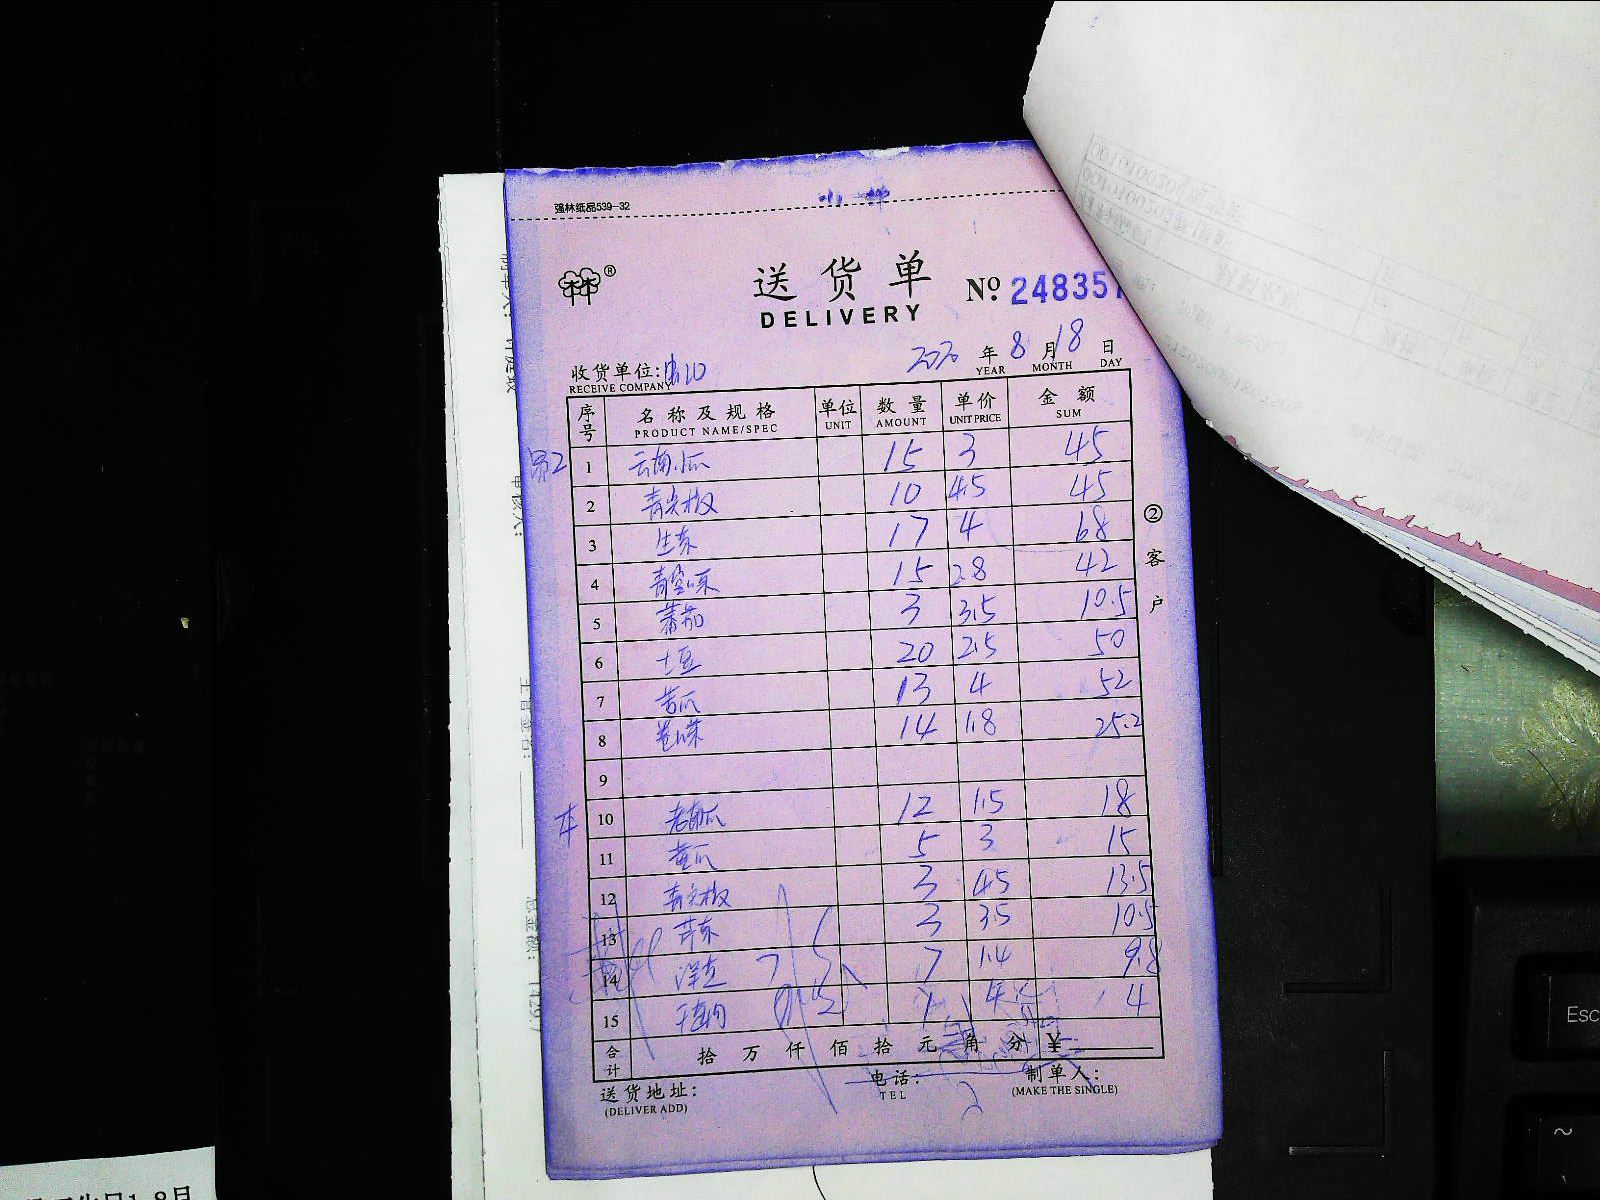 强林纸品539-32
送货单
DELIVERY
No. 248357
2020 年 8 月 18 日
YEAR MONTH DAY
收货单位:
RECEIVE COMPANY
序号 名称及规格 单位 数量 单价 金额
PRODUCT NAME/SPEC UNIT AMOUNT UNIT PRICE SUM
1 云南小瓜 15 3 45
2 青尖椒 10 4.5 45
3 生菜 17 4 68
4 青空心菜 15 2.8 42
5 蕃茄 3 3.5 10.5
6 土豆 20 2.5 50
7 苦瓜 13 4 52
8 卷心菜 14 1.8 25.2
9
10 老南瓜 12 1.5 18
11 黄瓜 5 3 15
12 青尖椒 3 4.5 13.5
13 芹菜 3 3.5 10.5
14 7 1.4 9.8
15 1 4 4
合计 拾 万 仟 佰 拾 元 角 分 ¥
送货地址: 电话: 制单人:
(DELIVER ADD) TEL (MAKE THE SINGLE)
②客户
Esc
~